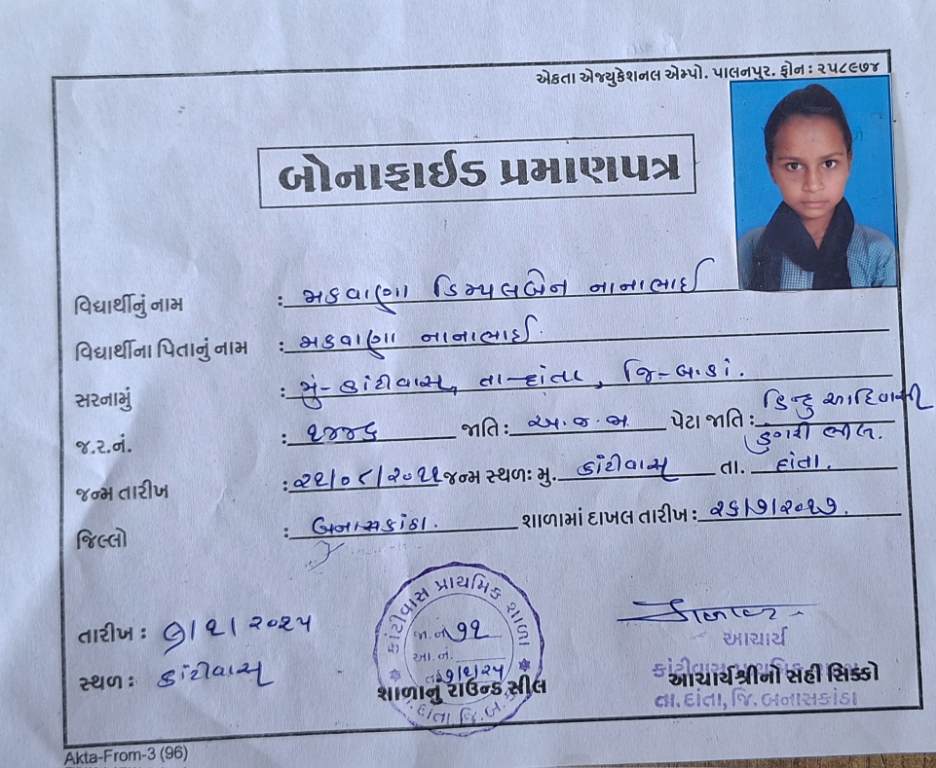 એકતા એજ્યુકેશનલ એમ્પો. પાલનપુર. ફોન : ૨૫૮૯૭૪
બોનાફાઈડ પ્રમાણપત્ર
વિદ્યાર્થીનું નામ : મકવાણા ડિમ્પલબેન નાનાભાઈ
વિદ્યાર્થીના પિતાનું નામ : મકવાણા નાનાભાઈ
સરનામું : મું-કાંટીવાસ, તા-દાંતા, જિ-બ.કાં.
જ.ર.નં. : ૧૪૪૬ જાતિ : અ.જ.જા પેટા જાતિ : હિન્દુ આદિવાસી
ડુંગરી ભીલ.
જન્મ તારીખ : ૨૨/૦૮/૨૦૧૧ જન્મ સ્થળ: મુ. કાંટીવાસ તા. દાંતા.
જિલ્લો : બનાસકાંઠા. શાળામાં દાખલ તારીખ : ૨૬/૭/૨૦૧૭.
તારીખ : ૭/૧/૨૦૨૫
સ્થળ : કાંટીવાસ
કાંટીવાસ પ્રાથમિક શાળા
જા.નં ૭૧
આ.નં.
તા ૭/૧/૨૫
તા.દાંતા જિ.બ.કાં.
શાળાનું રાઉન્ડ સીલ
આચાર્ય
કાંટીવાસ પ્રાથમિક શાળા
આચાર્યશ્રીનો સહી સિક્કો
તા.દાંતા, જિ.બનાસકાંઠા
Akta-From-3 (96)